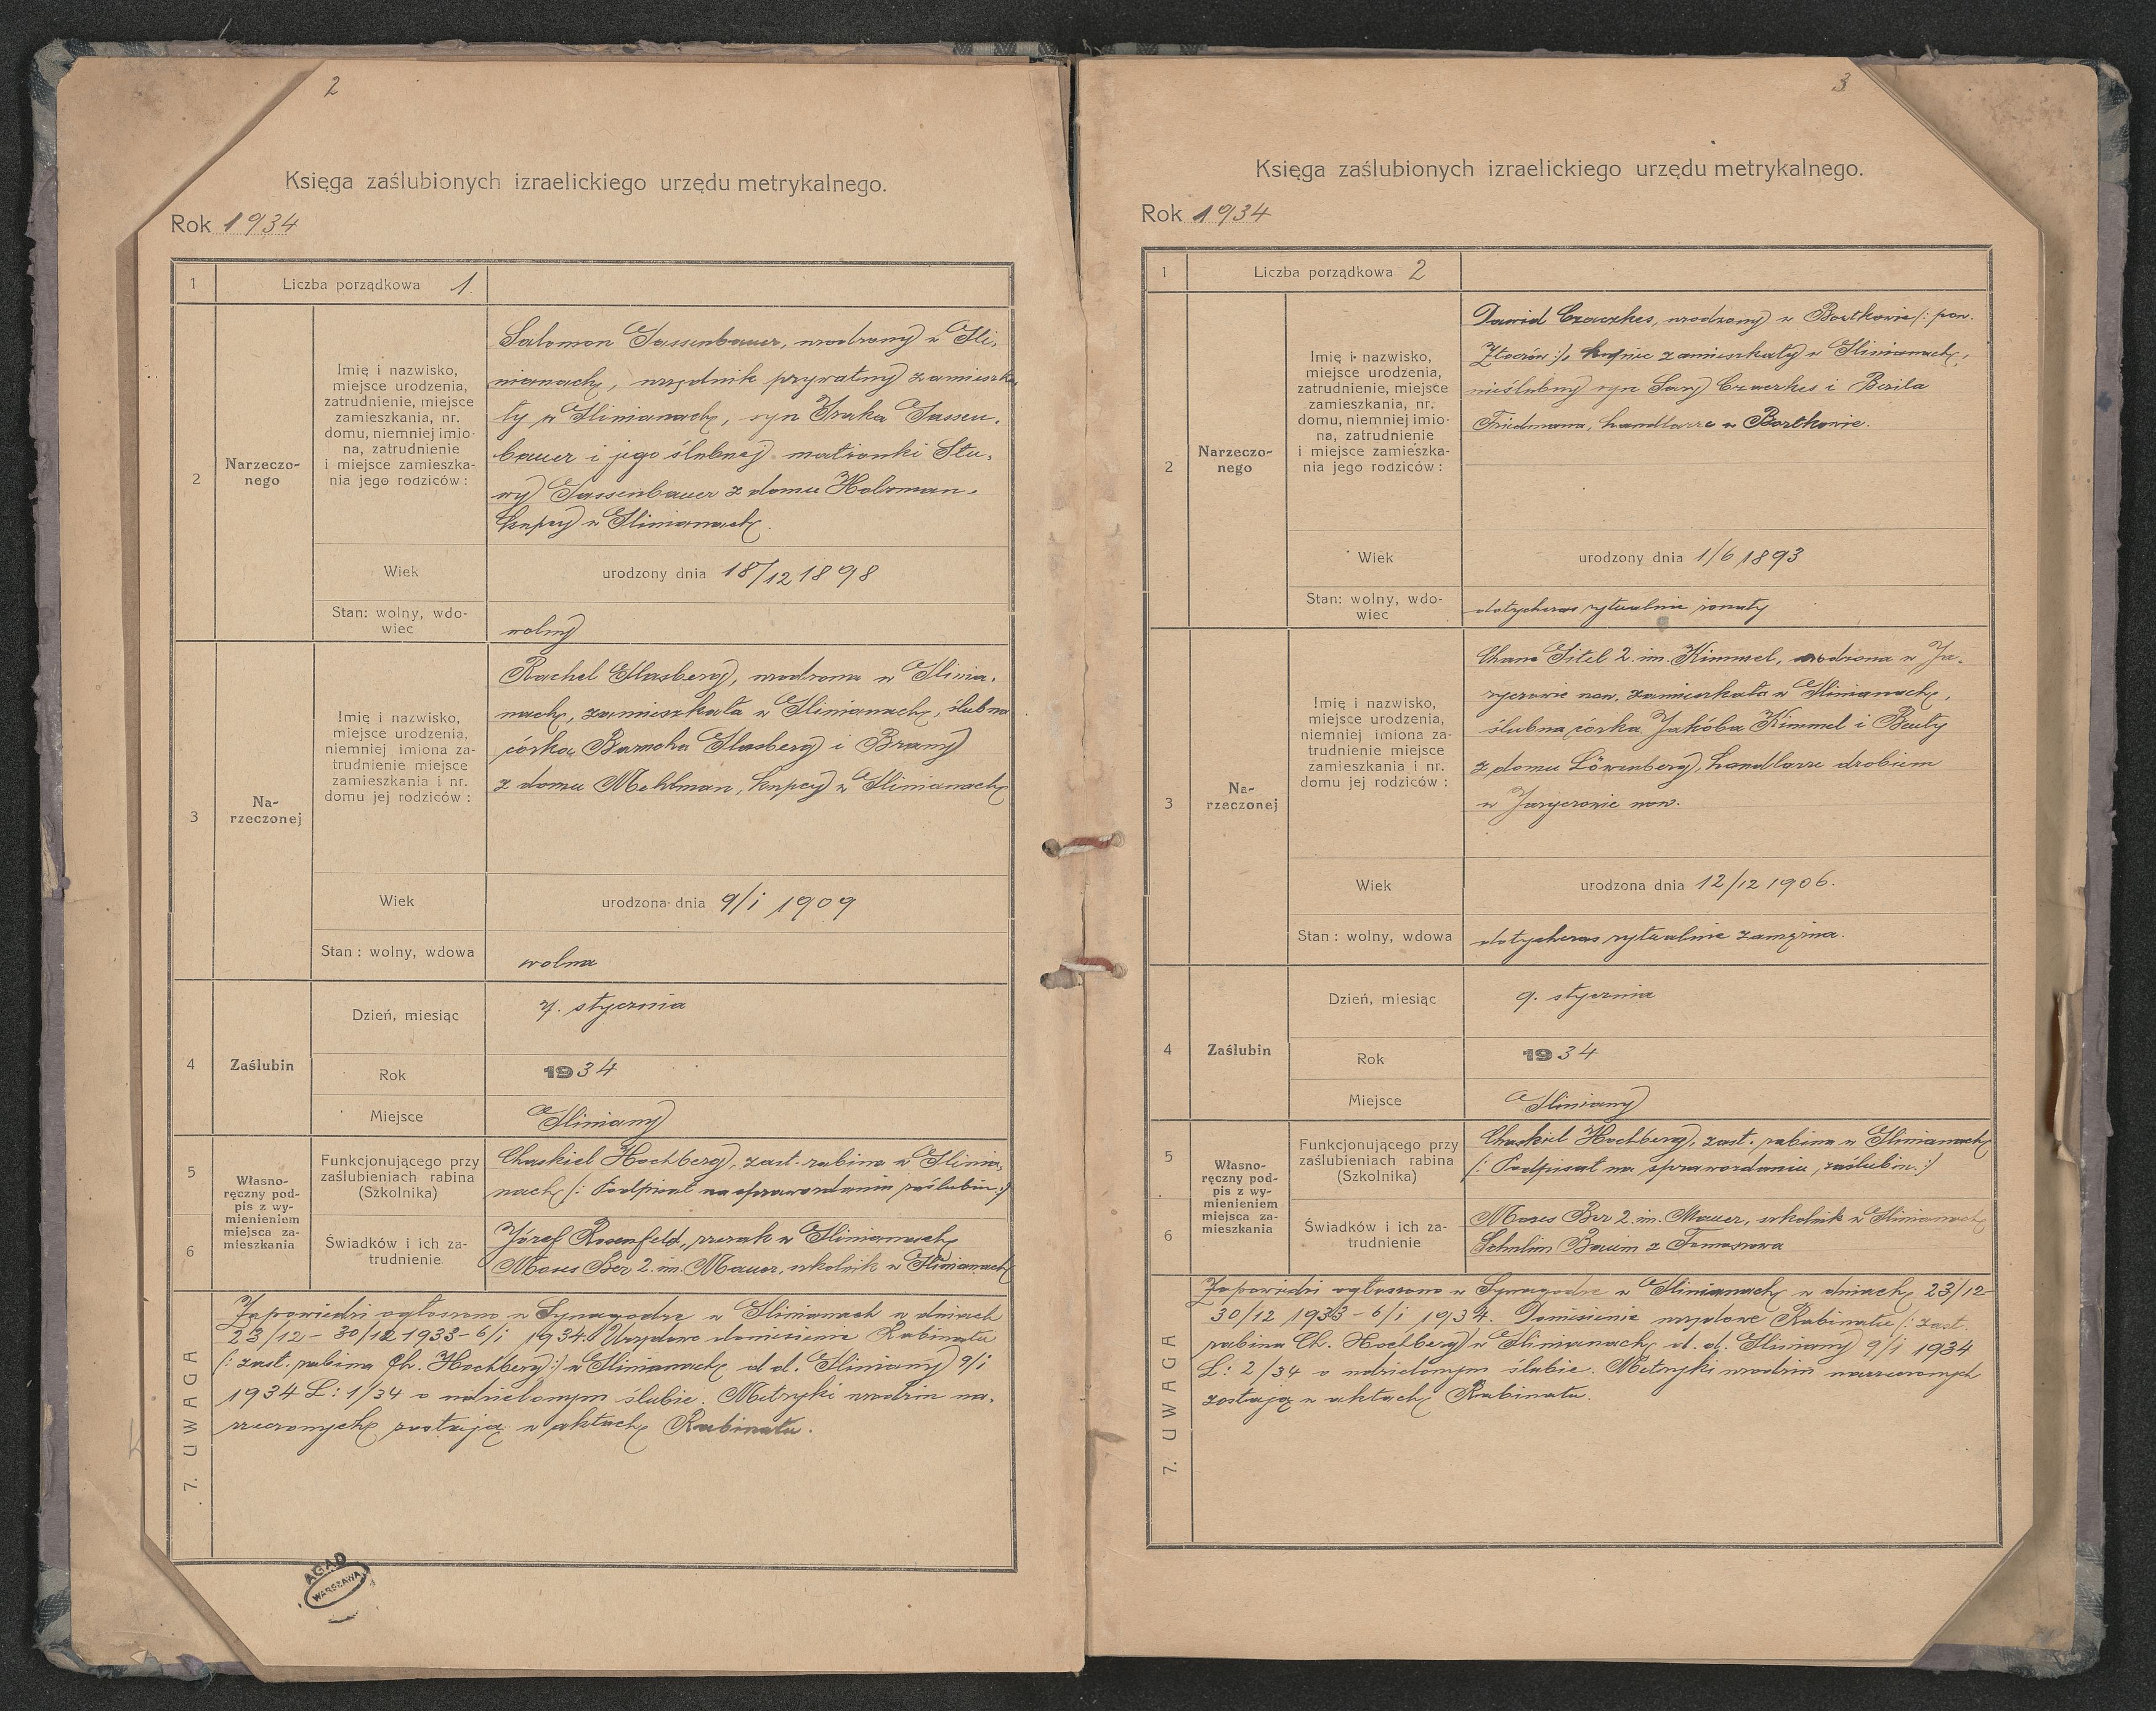 2
Księga zaślubionych izraelickiego urzędu metrykalnego.
Rok 1934
1 Liczba porządkowa 1.
2
Narzeczo-
nego
Imię i nazwisko,
miejsce urodzenia,
zatrudnienie, miejsce
zamieszkania, nr.
domu, niemniej imio-
na, zatrudnienie
i miejsce zamieszka-
nia jego rodziców :
Salomon Sassenbauer, urodzony w Gli-
nianach, urzędnik prywatny zamieszka
ły w Glinianach, syn Izaka Sassen-
bauer i jego ślubnej małżonki
Sassenbauer z domu Holzman,
kupcy w Glinianach.
Wiek
urodzony dnia 18/12 1898
Stan: wolny, wdo-
wiec
wolny
3
Na-
rzeczonej
Imię i nazwisko,
miejsce urodzenia,
niemniej imiona za-
trudnienie miejsce
zamieszkania i nr.
domu jej rodziców :
Rachel Glasberg, urodzona w Glinia-
nach, zamieszkała w Glinianach, ślubna
córka Barucha Glasberg i Brany
z domu Mehlman, kupcy w Glinianach
Wiek
urodzona dnia 9/i 1909
Stan : wolny, wdowa
wolna
4
Zaślubin
Dzień, miesiąc
7. stycznia
Rok
1934
Miejsce
Gliniany
5
6
Własno-
ręczny pod-
pis z wy-
mienieniem
miejsca za-
mieszkania
Funkcjonującego przy
zaślubieniach rabina
(Szkolnika)
Chaskiel Hochberg, zast. rabina w Glinia-
nach (: Podpisał na sprawozdaniu zaślubin :)
Świadków i ich za-
trudnienie
Józef Rosenfeld, rzezak w Glinianach
Moses Ber 2. im. Mauer, szkolnik w Glinianach
7. UWAGA
Zapowiedzi ogłoszono w Synagodze w Glinianach w dniach
23/12 - 30/12 1933 - 6/i 1934. Urzędowe doniesienie Rabinatu
(: zast. rabina Ch. Hochberg :) w Glinianach d d. Gliniany 9/i
1934 L: 1/34 o udzielonym ślubie. Metryki urodzin na-
rzeczonych zostają w aktach Rabinatu.
AGAD
WARSZAWA
3
Księga zaślubionych izraelickiego urzędu metrykalnego.
Rok 1934
1 Liczba porządkowa 2
2
Narzeczo-
nego
Imię i nazwisko,
miejsce urodzenia,
zatrudnienie, miejsce
zamieszkania, nr.
domu, niemniej imio-
na, zatrudnienie
i miejsce zamieszka-
nia jego rodziców :
Dawid Czaczkes, urodzony w Bortkowie (: pow.
Złoczów :), kupiec zamieszkały w Glinianach,
nieślubny syn Sary Czaczkes i
Friedmana, handlarze w Bortkowie.
Wiek
urodzony dnia 1/6 1893
Stan: wolny, wdo-
wiec
dotychczas rytualnie żonaty
3
Na-
rzeczonej
Imię i nazwisko,
miejsce urodzenia,
niemniej imiona za-
trudnienie miejsce
zamieszkania i nr.
domu jej rodziców :
Chane Sitel 2. im. Kimmel, urodzona w Ja-
ryczowie now. zamieszkała w Glinianach,
ślubna córka Jakóba Kimmel i
z domu Löwenberg, handlarze drobiem
w Jaryczowie now.
Wiek
urodzona dnia 12/12 1906.
Stan : wolny, wdowa
dotychczas rytualnie zamężna.
4
Zaślubin
Dzień, miesiąc
9. stycznia
Rok
1934
Miejsce
Gliniany
5
6
Własno-
ręczny pod-
pis z wy-
mienieniem
miejsca za-
mieszkania
Funkcjonującego przy
zaślubieniach rabina
(Szkolnika)
Chaskiel Hochberg, zast. rabina w Glinianach
(: Podpisał na sprawozdaniu zaślubin :)
Świadków i ich za-
trudnienie
Moses Ber 2. im. Mauer, szkolnik w Glinianach
Schulim Baum z
7. UWAGA
Zapowiedzi ogłoszono w Synagodze w Glinianach w dniach 23/12-
30/12 1933 - 6/i 1934. Doniesienie urzędowe Rabinatu (: zast.
rabina Ch. Hochberg) w Glinianach d. d. Gliniany 9/i 1934
L: 2/34 o udzielonym ślubie. Metryki urodzin narzeczonych
zostają w aktach Rabinatu.